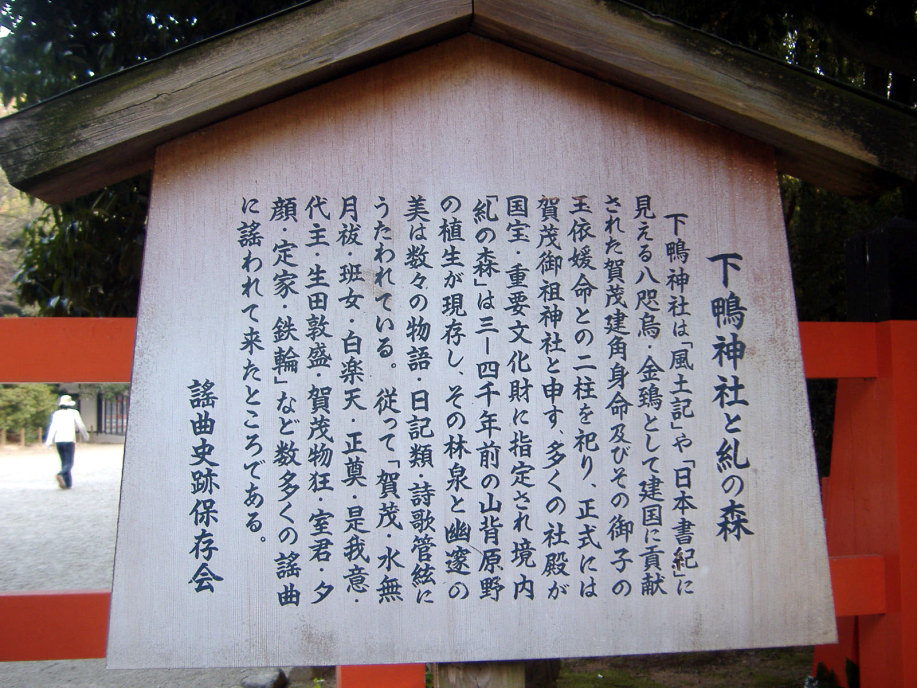 下鴨神社と糺の森
下鴨神社は「風土記」や「日本書紀」に
見える八咫烏・金鵄として建国に貢献
された賀茂建角身命及びその御子の
玉依媛命との二柱を祀り、正式には
賀茂御祖神社と申す、多くの社殿が
国宝・重要文化財に指定され境内
「糺の森」は三ー四千年前の山背原野
の植生が現存し、その林泉と幽邃の
美は数々の物語・日記類・詩歌管絃に
うたわれている。従って「賀茂・水無
月祓・班女・白楽天・正尊・是我意・
代主・生田敦盛・賀茂物狂・室君・夕
顔・定家・鉄輪」など数多くの謡曲
に謡われて来たところである。
謡曲史跡保存会